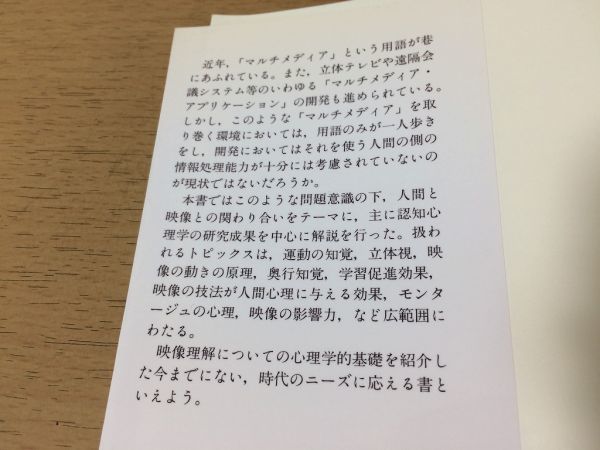 近年，「マルチメディア」という用語が巷
にあふれている。また，立体テレビや遠隔会
議システム等のいわゆる「マルチメディア・
アプリケーション」の開発も進められている。
しかし，このような「マルチメディア」を取
り巻く環境においては，用語のみが一人歩き
をし，開発においてはそれを使う人間の側の
情報処理能力が十分には考慮されていないの
が現状ではないだろうか。
本書ではこのような問題意識の下，人間と
映像との関わり合いをテーマに，主に認知心
理学の研究成果を中心に解説を行った。扱わ
れるトピックスは，運動の知覚，立体視，映
像の動きの原理，奥行知覚，学習促進効果，
映像の技法が人間心理に与える効果，モンタ
ージュの心理，映像の影響力，など広範囲に
わたる。
映像理解についての心理学的基礎を紹介し
た今までにない，時代のニーズに応える書と
いえよう。